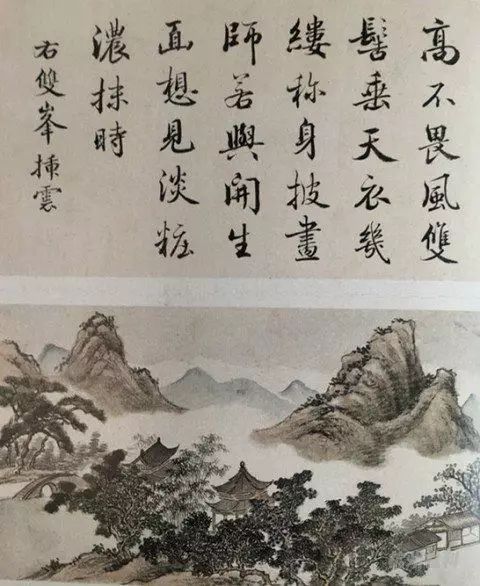 高不畏風雙
髻垂天衣幾
縷称身披畫
師若與開生
面想見淡粧
濃抹時
右雙峯插雲